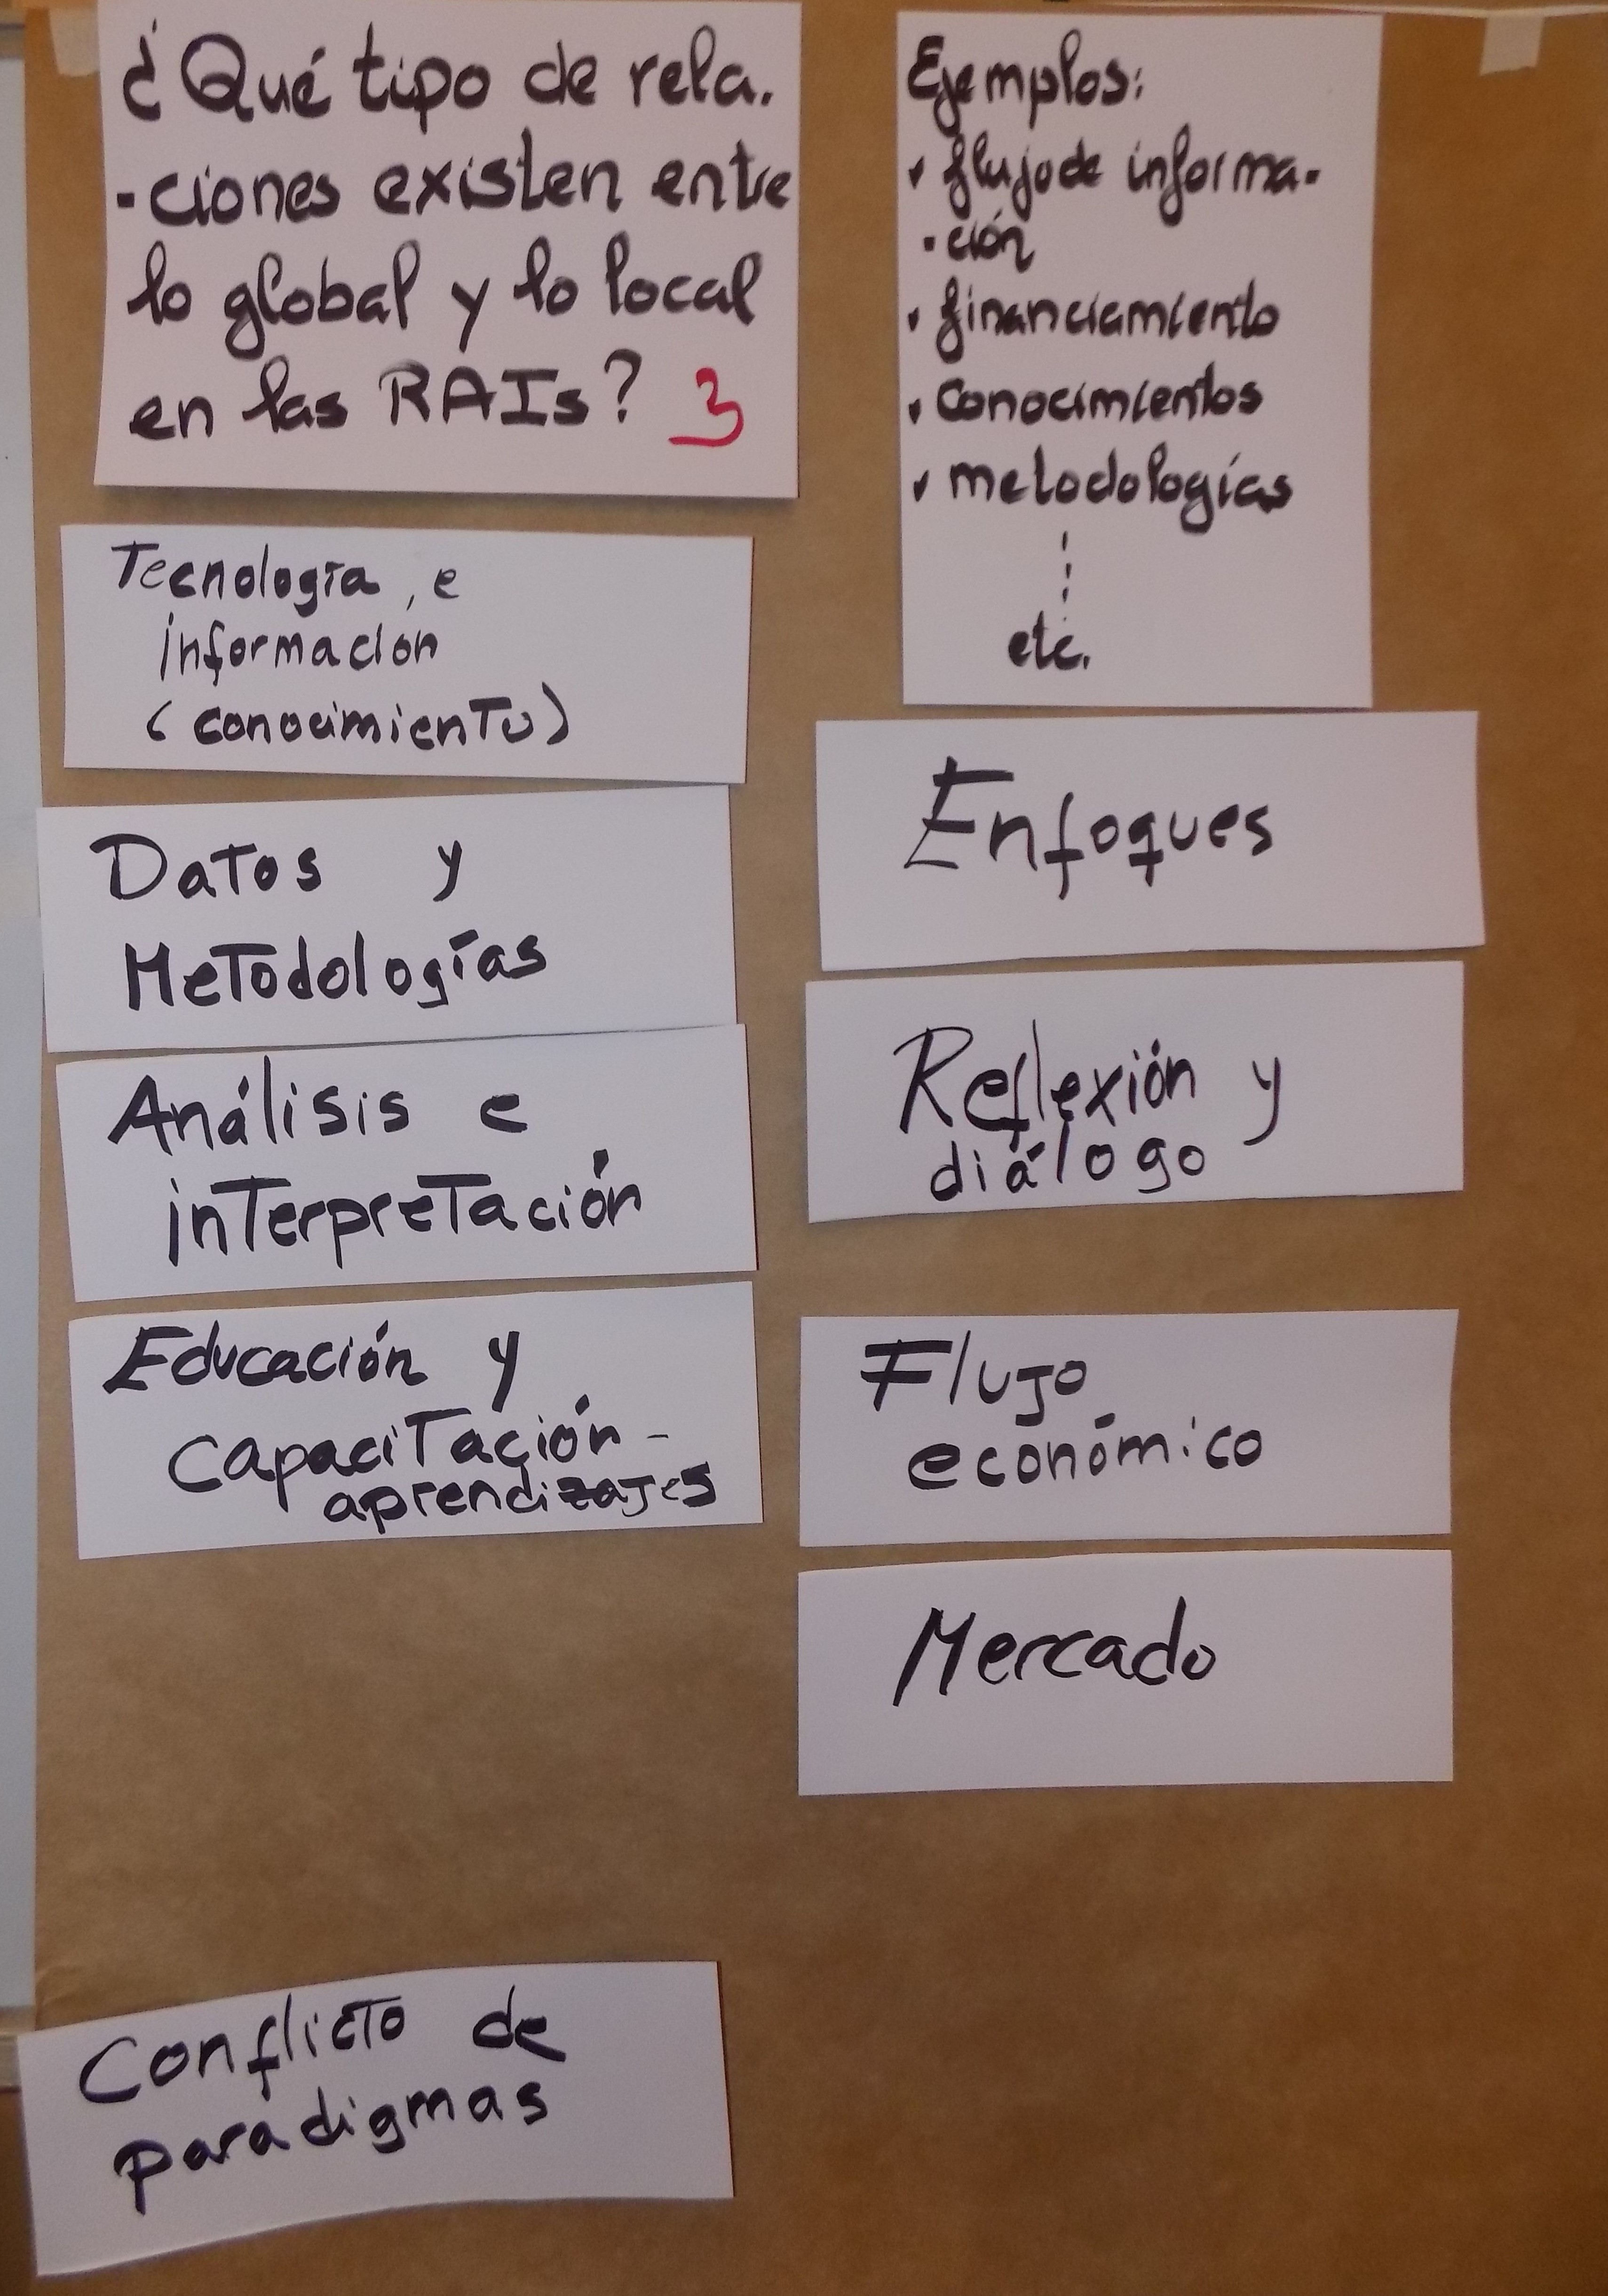 ¿Qué tipo de rela.
-ciones existen entre
lo global y lo local
en las RAIs? 3
Ejemplos:
• flujo de informa-
-ción
• financiamiento
• conocimientos
• metodologías
etc.
Tecnología, e
información
(conocimiento)
Datos y
Metodologías
Análisis e
interpretación
Educación y
capacitación -
aprendizajes
Enfoques
Reflexión y
diálogo
Flujo
económico
Mercado
Conflicto de
paradigmas